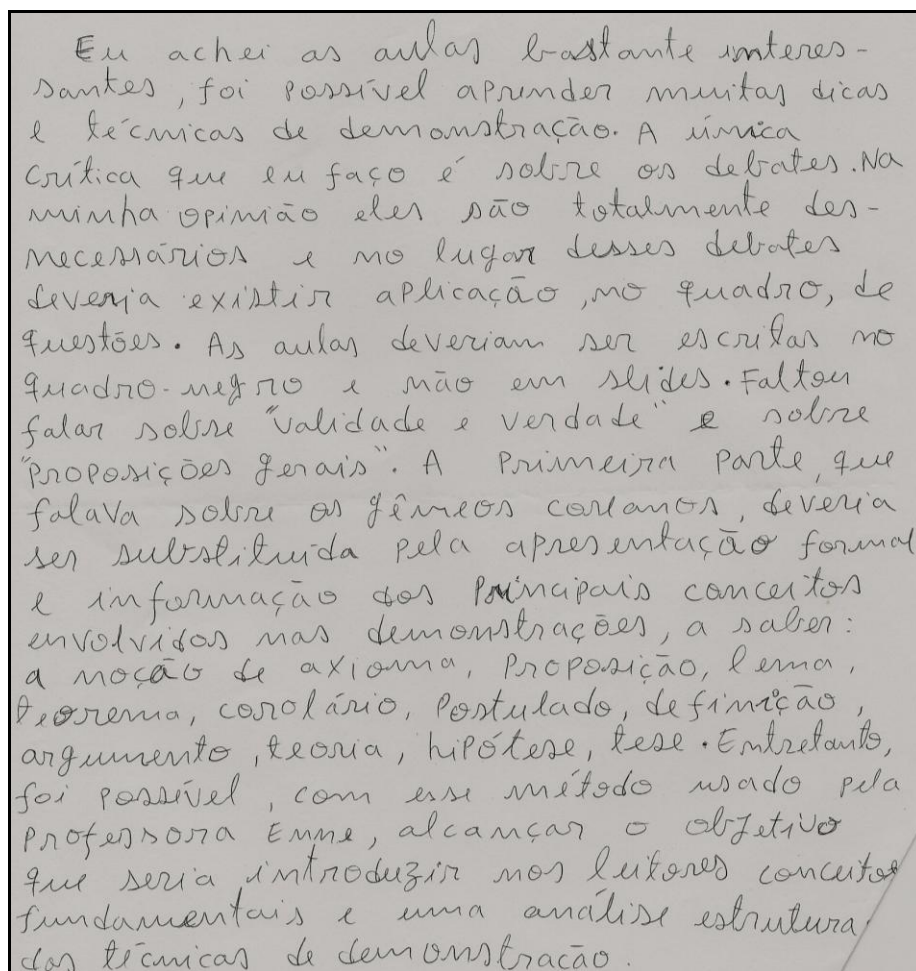 Eu achei as aulas bastante interes-
santes, foi possível aprender muitas dicas
e técnicas de demonstração. A única
crítica que eu faço é sobre os debates. Na
minha opinião eles são totalmente des-
necessários e no lugar desses debates
deveria existir aplicação, no quadro, de
questões. As aulas deveriam ser escritas no
quadro-negro e não em slides. Faltou
falar sobre "validade e verdade" e sobre
"proposições gerais". A primeira parte, que
falava sobre os gêmeos corianos, deveria
ser substituida pela apresentação formal
e informação dos principais conceitos
envolvidos nas demonstrações, a saber:
a noção de axioma, proposição, lema,
teorema, corolário, postulado, definição,
argumento, teoria, hipótese, tese. Entretanto,
foi possível, com esse método usado pela
professora Emne, alcançar o objetivo
que seria introduzir nos leitores conceitos
fundamentais e uma análise estrutura
das técnicas de demonstração.